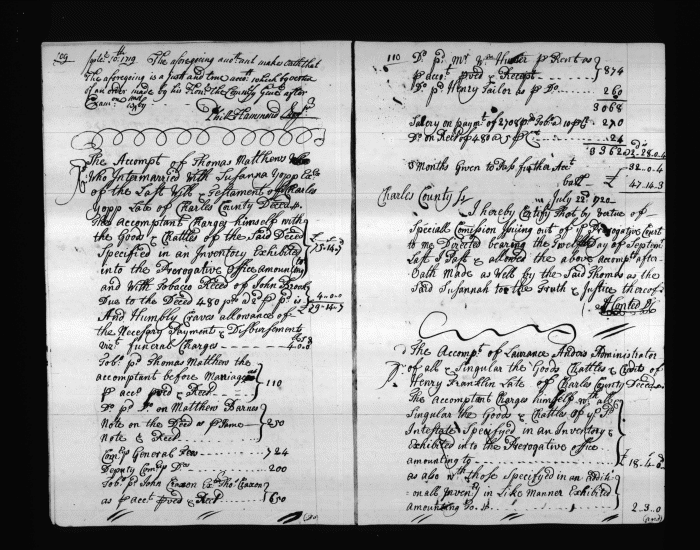 109
10th: 1719 The aforegoing makes oath that
The aforegoing is a Just and true acct: which by vertue
of an order made by his Honr. the County after
The Accompt of Thomas Matthews
Who Intermarried with Susanna Yopp Exx.
of the Last Will & Testament of Charles
Yopp Late of Charles County Deced.
This accomptant Charges himself with
the Goods & Chattles of the Said Deced
Specified in an Inventory Exhibited
into the Prerogative office amounting
£ s d
75.14.7
and With Tobacco Reced of John
Due to the Deced 480 pds a 2d p p is
4..0..0
£ 79.14.7
And Humbly Craves allowance of
the Necessary Payments & Disbursements
Vizt. Funeral Charges
4.0.0
Tobo. pd Thomas Matthew the
accomptant before Marriage
p acct pved & Reced
110
Do. pd Do. on Matthew Barnes
Note on the Deced as p Same
note & Reced
250
General Fees
724
Deputy Do
200
Tobo. pd John Exx. Tho.
as p acct pved & Recd
1600
110
Do pd Mr Wm Hunter p Rent as
p acct pved & Receipt
874
Do pd Henry Tailor as p Do.
260
3068
Salary on paymt of 2708 pds Tobo. a 10 p Ct.
270
Do on Rect of 480 a 5 p Ct
24
3362
28.0.4
£
32..0..4
Months Given to Pass further Acct
ball £
47.14.3
Charles County Ss
July 22d 1720
I hereby Certify that by virtue of
Speciall Comission Issuing out of ye Prerogative Court
to me Directed bearing the Twelfth Day of Septemr
Last I Past & allowed the above accompt after
Oath Made as Well by the Said Thomas as the
Said Susannah to the Truth & Justice thereof
The Accompt of Laurance Administrator
of all & Singular the Goods Chattles & Credits of
Henry Franklin Late of Charles County Deceased
This accomptant Charges himself with all
Singular the Goods & Chattles of ye sd
Intestate Specifyed in an Inventory
Exhibited into the Prerogative office
amounting to
£ 18.4.0
as also wth those Specifyed in an Additi
onall Inventy in Like Manner Exhibited
amounting to
2..3..0